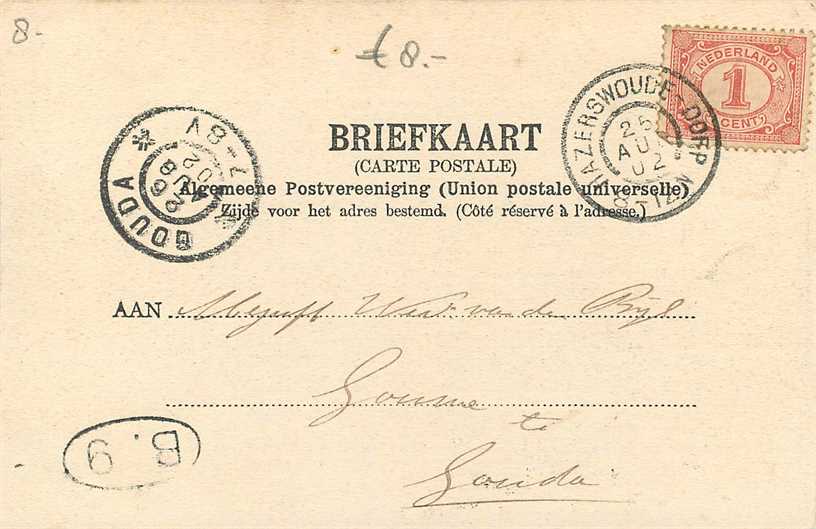 8-
£ 8.-
NEDERLAND
1
CENT
HAZERSWOUDE-DORP
25
AUG
02
8-12N
GOUDA
26
AUG
02
7-8V
BRIEFKAART
(CARTE POSTALE)
Algemeene Postvereeniging (Union postale universelle)
Zijde voor het adres bestemd. (Côté réservé à l'adresse.)
AAN Mejuff van der
te
Gouda
B. 9